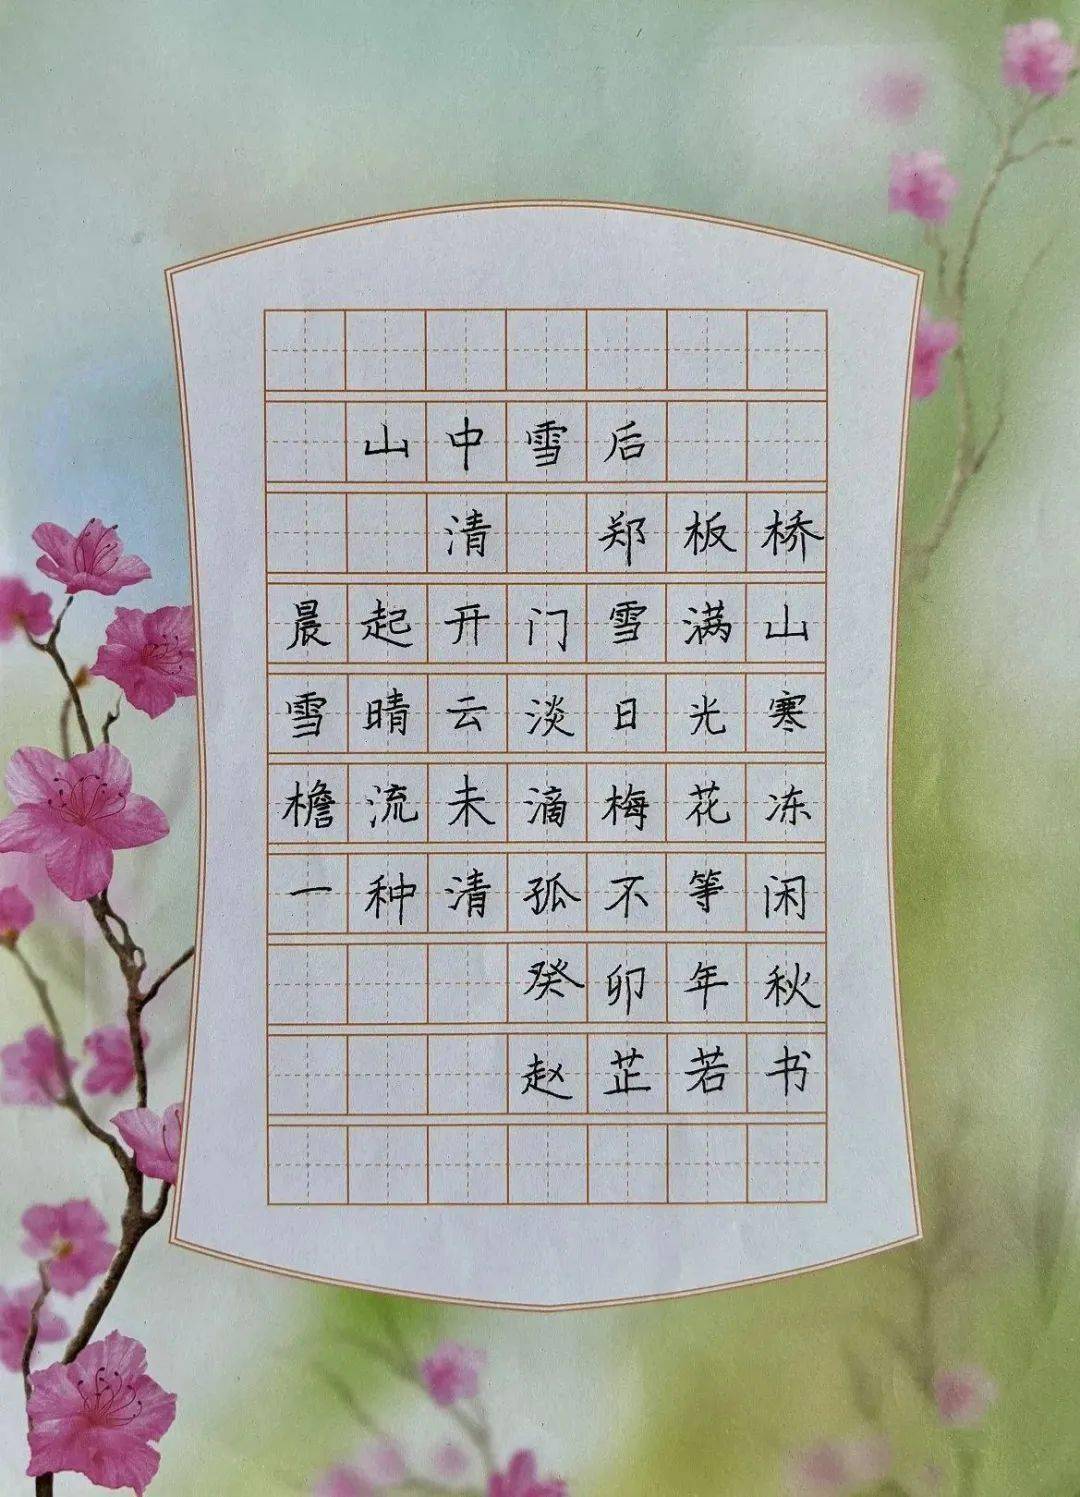 山中雪后
清 郑板桥
晨起开门雪满山
雪晴云淡日光寒
檐流未滴梅花冻
一种清孤不等闲
癸卯年秋
赵芷若书